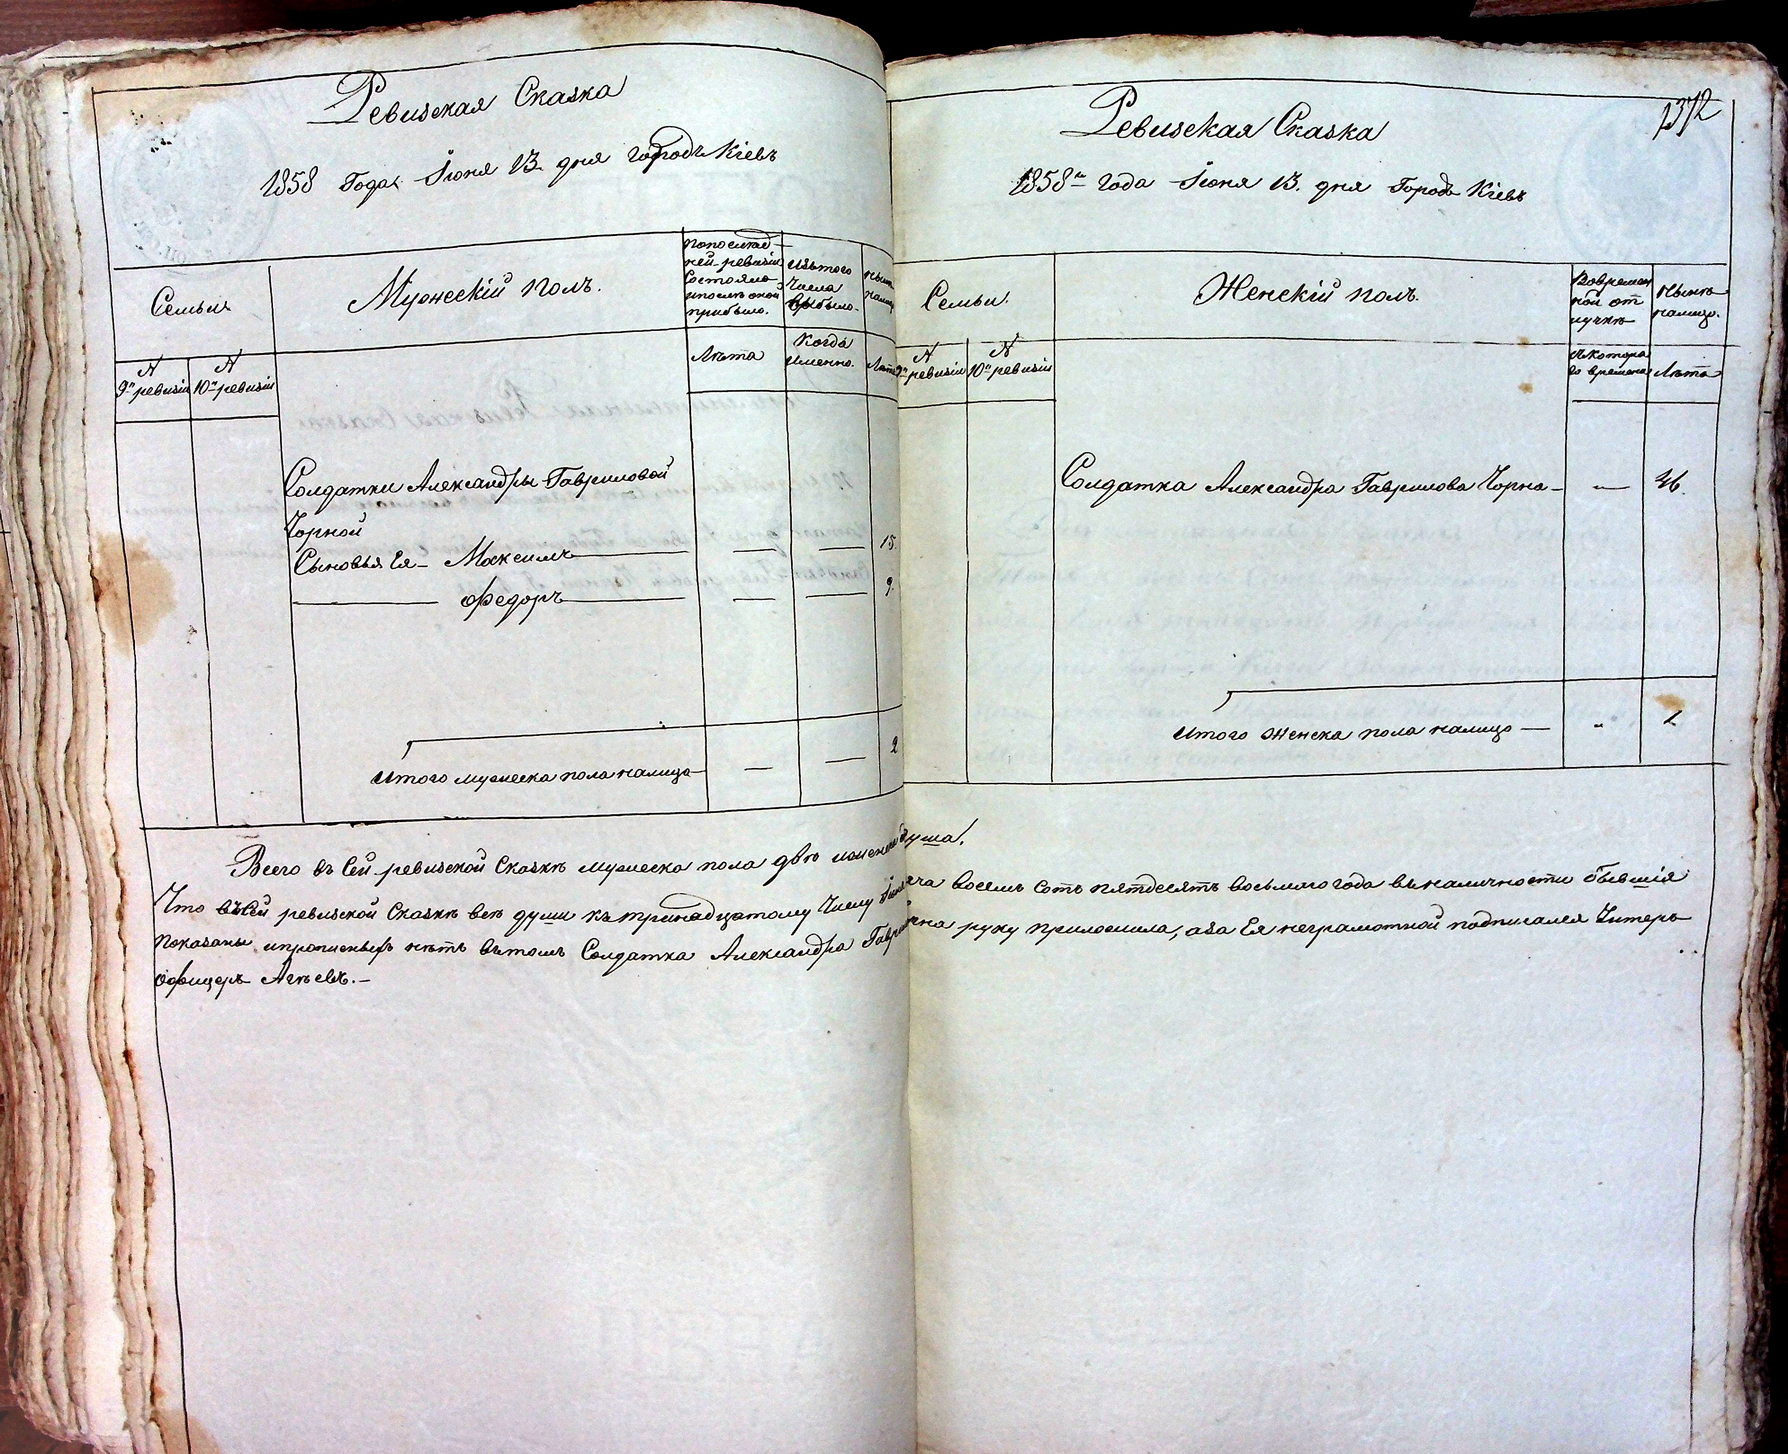 Ревизская Сказка
1858 Года Іюня 13. дня городъ Кіевъ
Семьи
Мужескій полъ.
По послѣд-
ней ревизіи
Состояло
и послѣ оной
прибыло.
Изъ того
Числа
выбыло.
Нынѣ
налицо
N
9й ревизіи
N
10й ревизіи
Лѣта
Когда
Именно.
Лѣта
Солдатки Александры Гавриловой
Чорной
Сыновья Ея – Максимъ — — 15.
Федоръ — — 9.
Итого мужеска пола налицо — — 2
Ревизская Сказка
1372
1858го года Іюня 13. дня Городъ Кіевъ
Семьи.
Женскій полъ.
Во времен
ной от
лучкѣ
Нынѣ
налицо.
N
9й ревизіи
N
10й ревизіи
Съ котора
го времени
Лѣта
Солдатка Александра Гаврилова Чорна — — 46.
Итого Женска пола налицо — „ 1
Всего въ Сей ревизской Сказкѣ мужеска пола двѣ и женска душа.
Что въ Сей ревизской Сказкѣ всѣ души къ тринадцатому Числу Іюня восемь сотъ пятдесятъ восьмого года въ наличности бывшія
показаны и прописныхъ нѣтъ въ томъ Солдатка Александра Гаврилова руку приложила, а за Ея неграмотной подписался Унтеръ
Офицеръ Агѣевъ. –